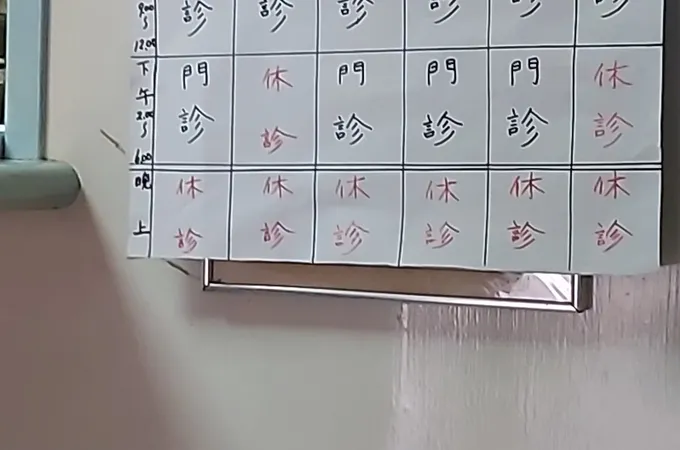 9:00 診 診 診 診 診 診
12:00
下午 2:00 6:00 門診 休診 門診 門診 門診 休診
晚上 休診 休診 休診 休診 休診 休診